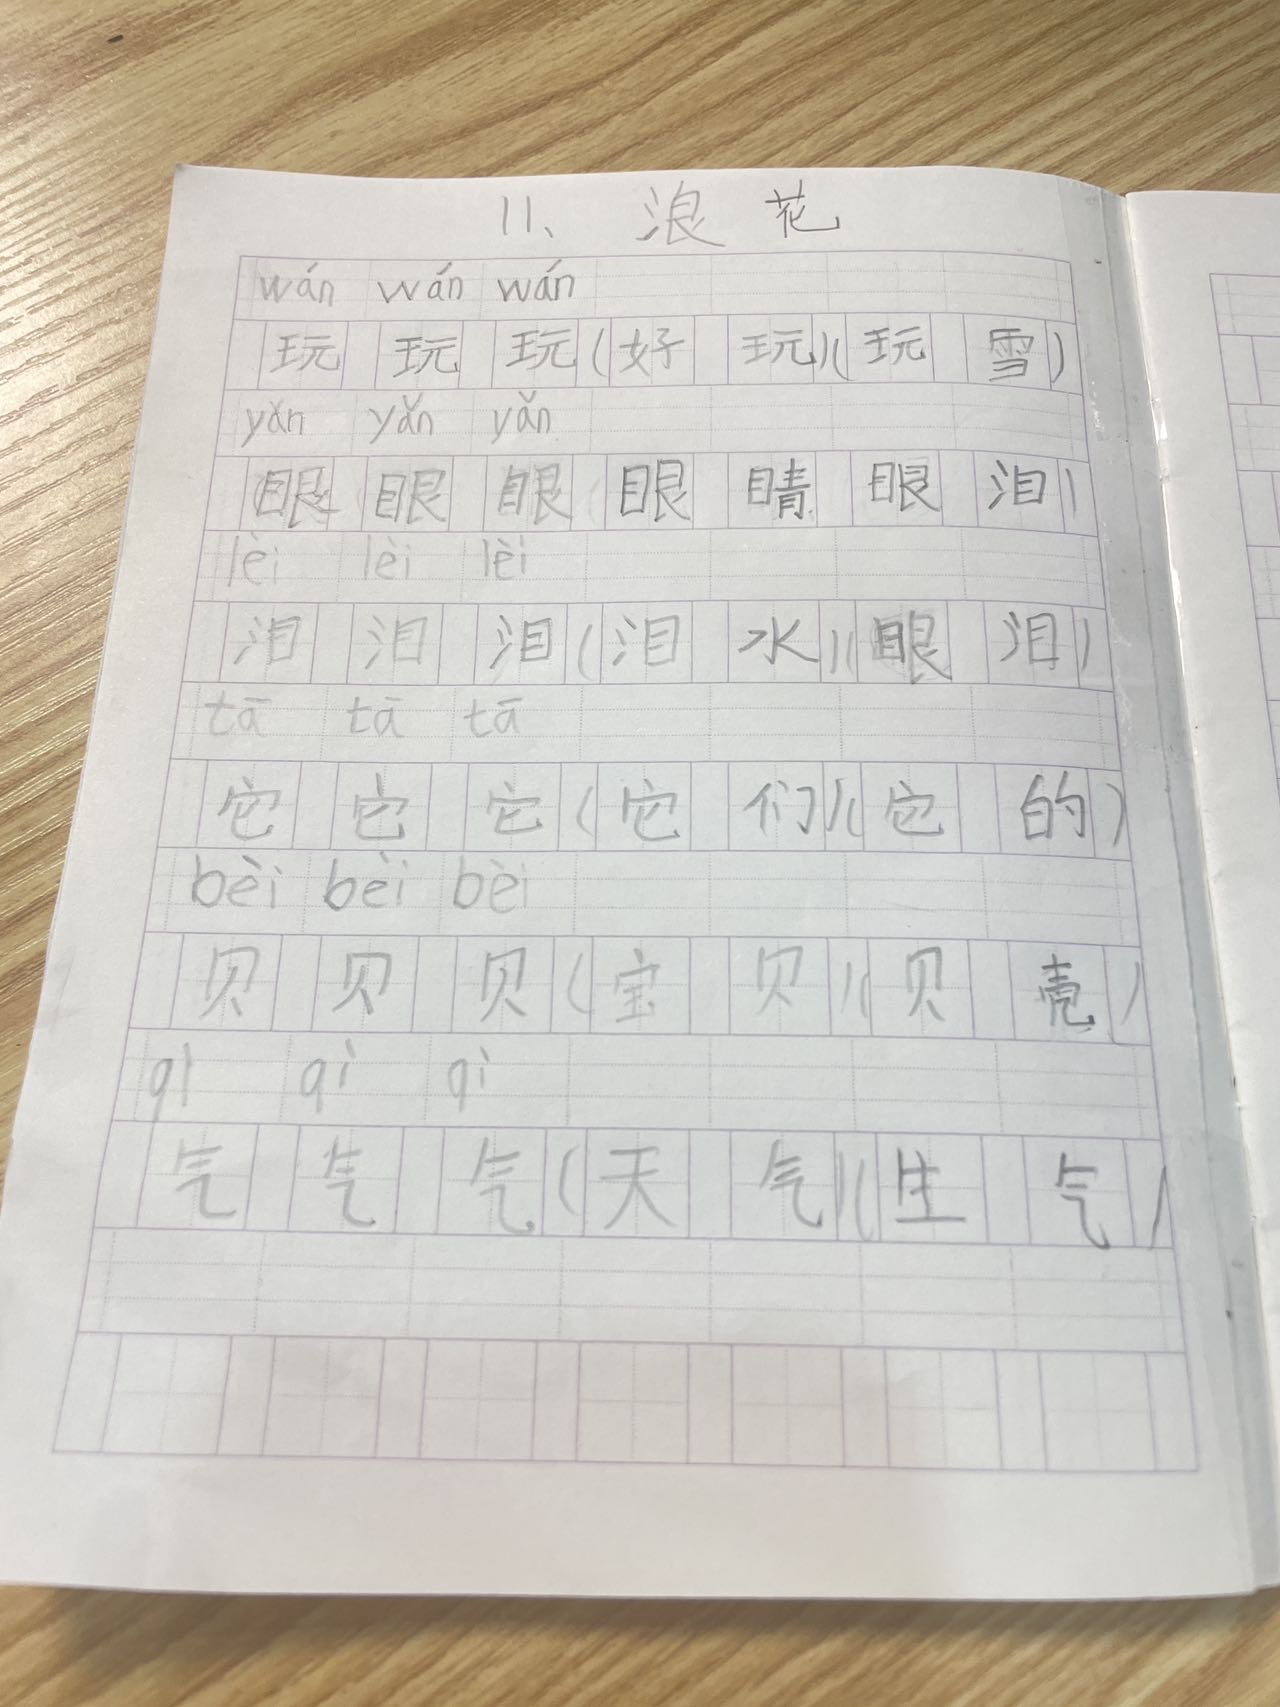 11、浪花
wán wán wán
玩 玩 玩(好玩)(玩雪)
yǎn yǎn yǎn
眼 眼 眼(眼睛 眼泪)
lèi lèi lèi
泪 泪 泪(泪水)(眼泪)
tā tā tā
它 它 它(它们)(它的)
bèi bèi bèi
贝 贝 贝(宝贝)(贝壳)
qì qì qì
气 气 气(天气)(生气)